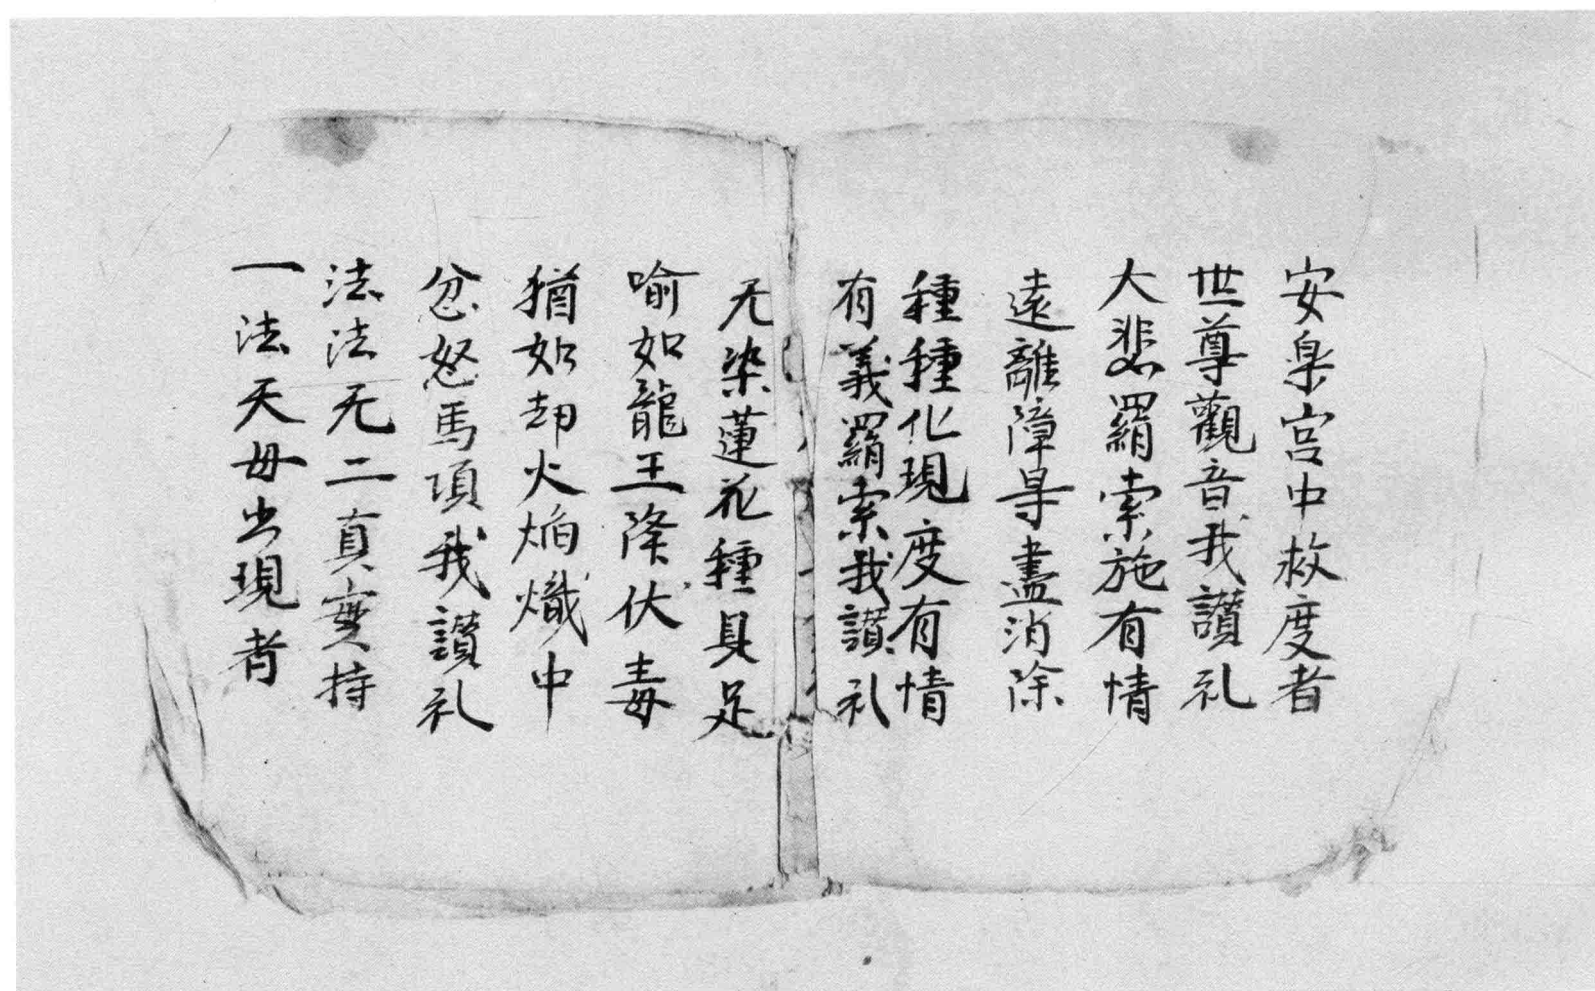 安樂宫中救度者
世尊觀音我讃礼
大悲羂索施有情
遠離障㝵盡消除
種種化現度有情
有義羂索我讃礼
无染蓮花種具足
喻如龍王降伏毒
猶如却火焔熾中
忿怒馬項我讃礼
法法无二真實持
一法天母出現者